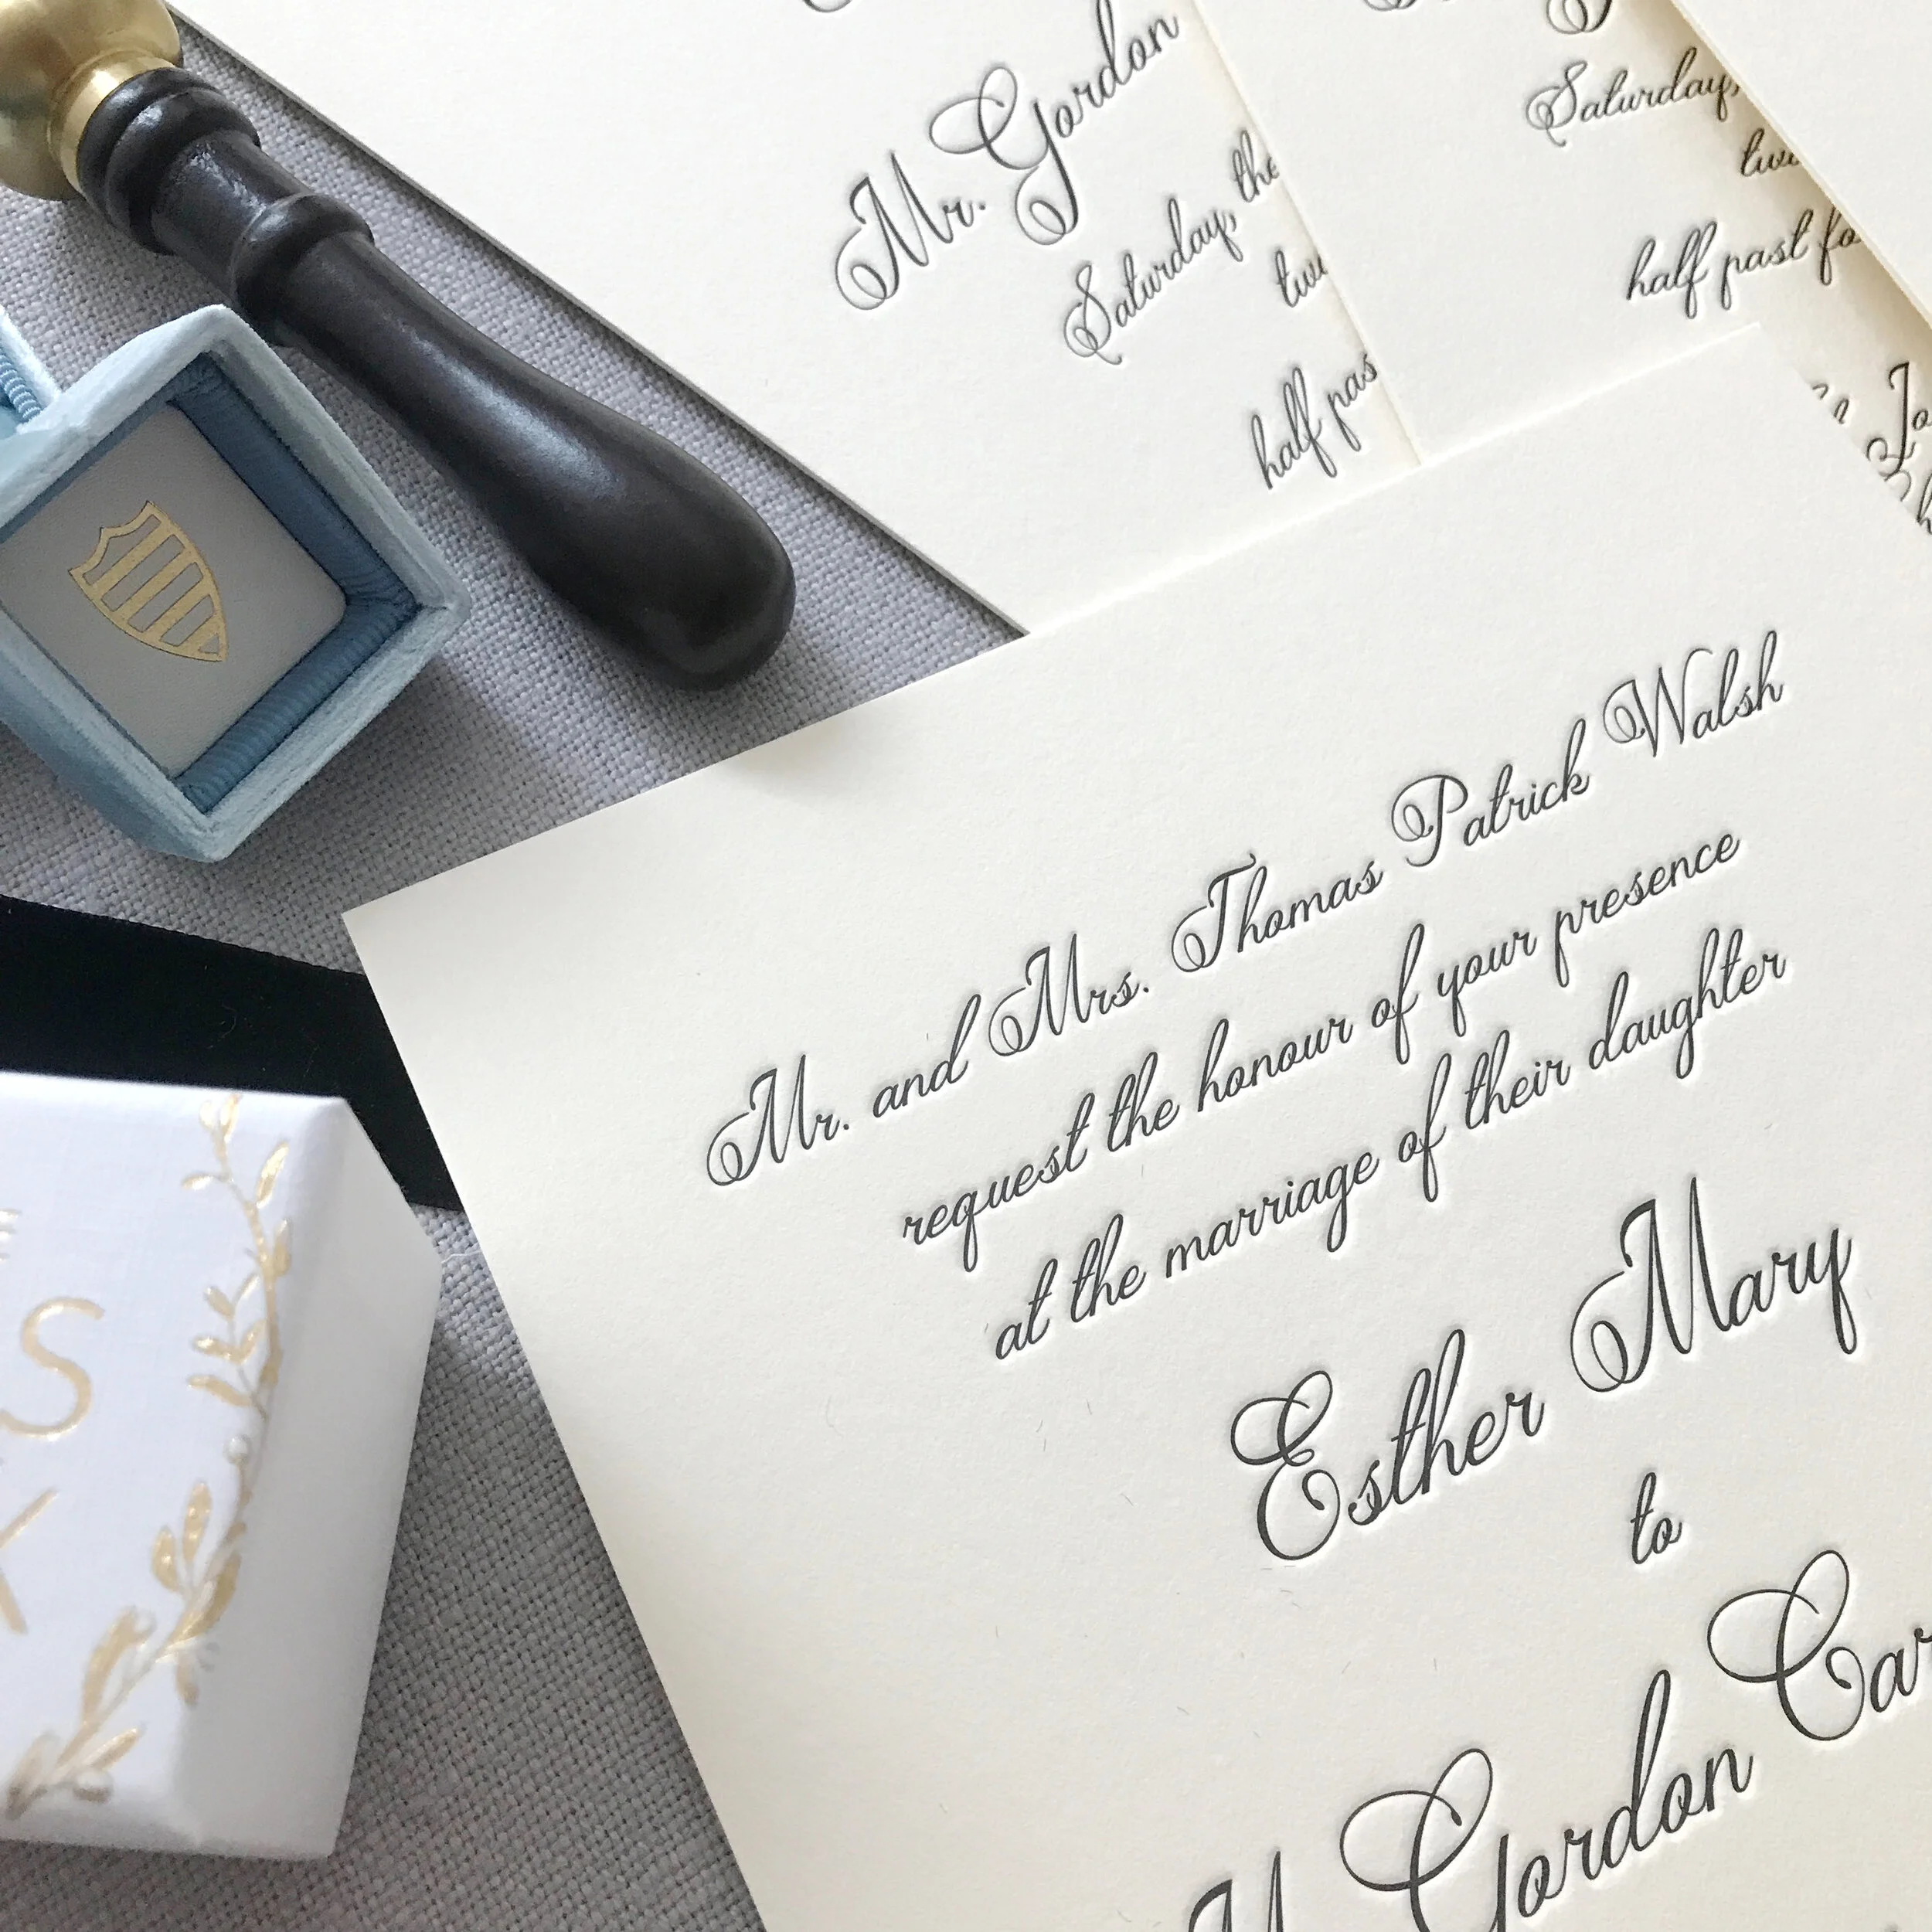 Mr. Gordon
Saturday, the
half
Saturday,
half past
Mr. and Mrs. Thomas Patrick Walsh
request the honour of your presence
at the marriage of their daughter
Esther Mary
to
Gordon
S